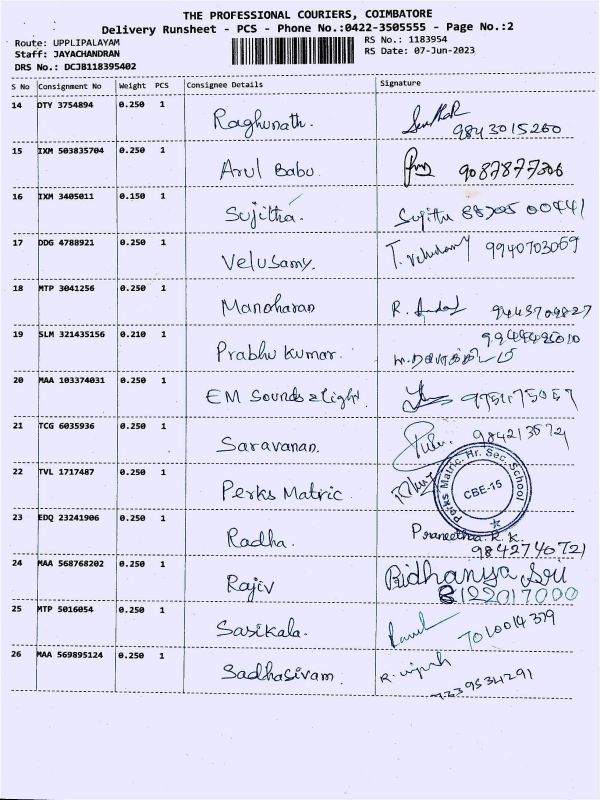 THE PROFESSIONAL COURIERS, COIMBATORE
Delivery Runsheet - PCS - Phone No.:0422-3505555 - Page No.:2
Route: UPPLIPALAYAM
RS No.: 1183954
Staff: JAYACHANDRAN
RS Date: 07-Jun-2023
DRS No.: DCJB118395402
S No Consignment No Weight PCS Consignee Details Signature
14 OTY 3754894 0.250 1 Raghunath. 9843015260
15 IXM 503835704 0.250 1 Arul Babu 9087877306
16 IXM 3405011 0.150 1 Sujitha.
17 DDG 4788921 0.250 1 Velusamy. T. Velusamy 9940703069
18 MTP 3041256 0.250 1 Manoharan R.
19 SLM 321435156 0.210 1 Prabhu Kumar.
20 MAA 103374031 0.250 1 EM Sounds & Light.
21 TCG 6035936 0.250 1 Saravanan.
22 TVL 1717487 0.250 1 Perks Matric
Perks Matric. Hr. Sec. School
CBE-15
23 EDQ 23241906 0.250 1 Radha. Praneetha. R. K.
9842740721
24 MAA 568768202 0.250 1 Rajiv Ridhanya Sri
8122017000
25 MTP 5016054 0.250 1 Sasikala. 7010014379
26 MAA 569895124 0.250 1 Sadhasivam. R.